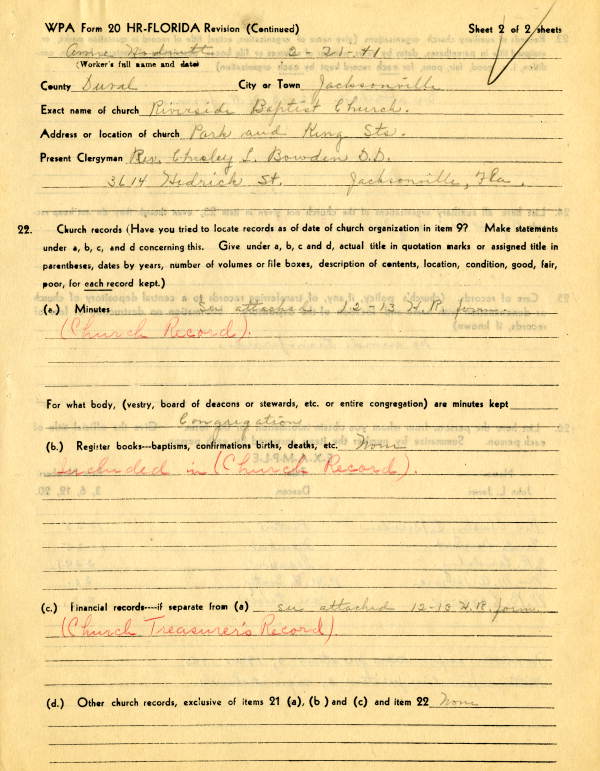 WPA Form 20 HR-FLORIDA Revision (Continued) Sheet 2 of 2 sheets
2-21-41
(Worker's full name and date)
County Duval City or Town Jacksonville
Exact name of church Riverside Baptist Church.
Address or location of church Park and King Sts.
Present Clergyman Rev. L. Bowden D.D.
3614 Hedrick St. Jacksonville, Fla.
22. Church records (Have you tried to locate records as of date of church organization in item 9? Make statements
under a, b, c, and d concerning this. Give under a, b, c and d, actual title in quotation marks or assigned title in
parentheses, dates by years, number of volumes or file boxes, description of contents, location, condition, good, fair,
poor, for each record kept.)
(a.) Minutes See attached 12-13 H.R. form.
(Church Record).
For what body, (vestry, board of deacons or stewards, etc. or entire congregation) are minutes kept
Congregation
(b.) Register books---baptisms, confirmations births, deaths, etc. None
Included in (Church Record).
(c.) Financial records----if separate from (a) see attached 12-13 H.R. form
(Church Treasurer's Record).
(d.) Other church records, exclusive of items 21 (a), (b ) and (c) and item 22 None